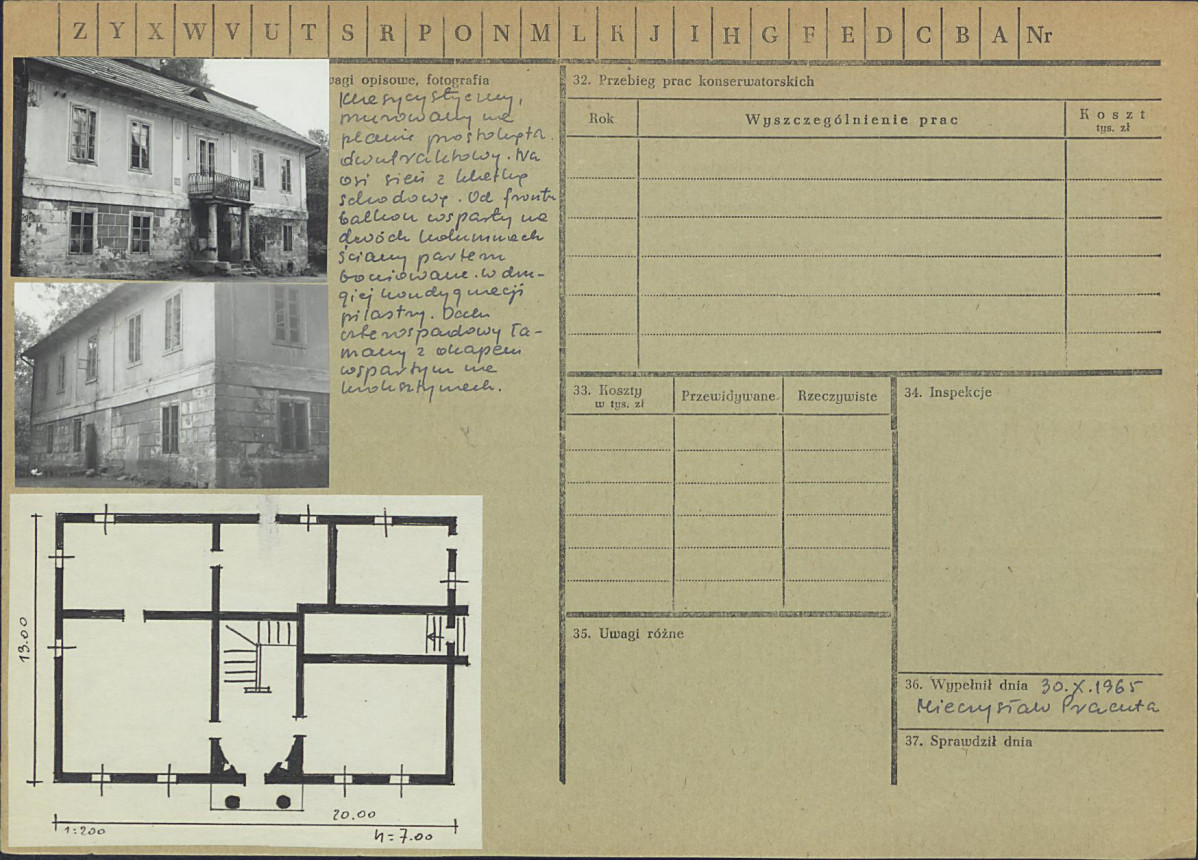 Z Y X W V U T S R P O N M L K J I H G F E D C B A Nr
wagi opisowe, fotografia
Klasycystyczny,
murowany na
planie prostokąta.
dwutraktowy. Na
osi sień z klatką
schodową. Od frontu
balkon wsparty na
dwóch kolumnach
ściany parteru
boniowane. w dru-
giej kondygnacji
pilastry. Dach
czterospadowy ła-
many z okapem
wspartym na
kroksztynach.
32. Przebieg prac konserwatorskich
Rok
Wyszczególnienie prac
Koszt
tys. zł
33. Koszty
w tys. zł
Przewidywane
Rzeczywiste
34. Inspekcje
35. Uwagi różne
36. Wypełnił dnia 30.X.1965
Mieczysław Pracuta
37. Sprawdził dnia
13.00
20.00
1:200
h=7.00